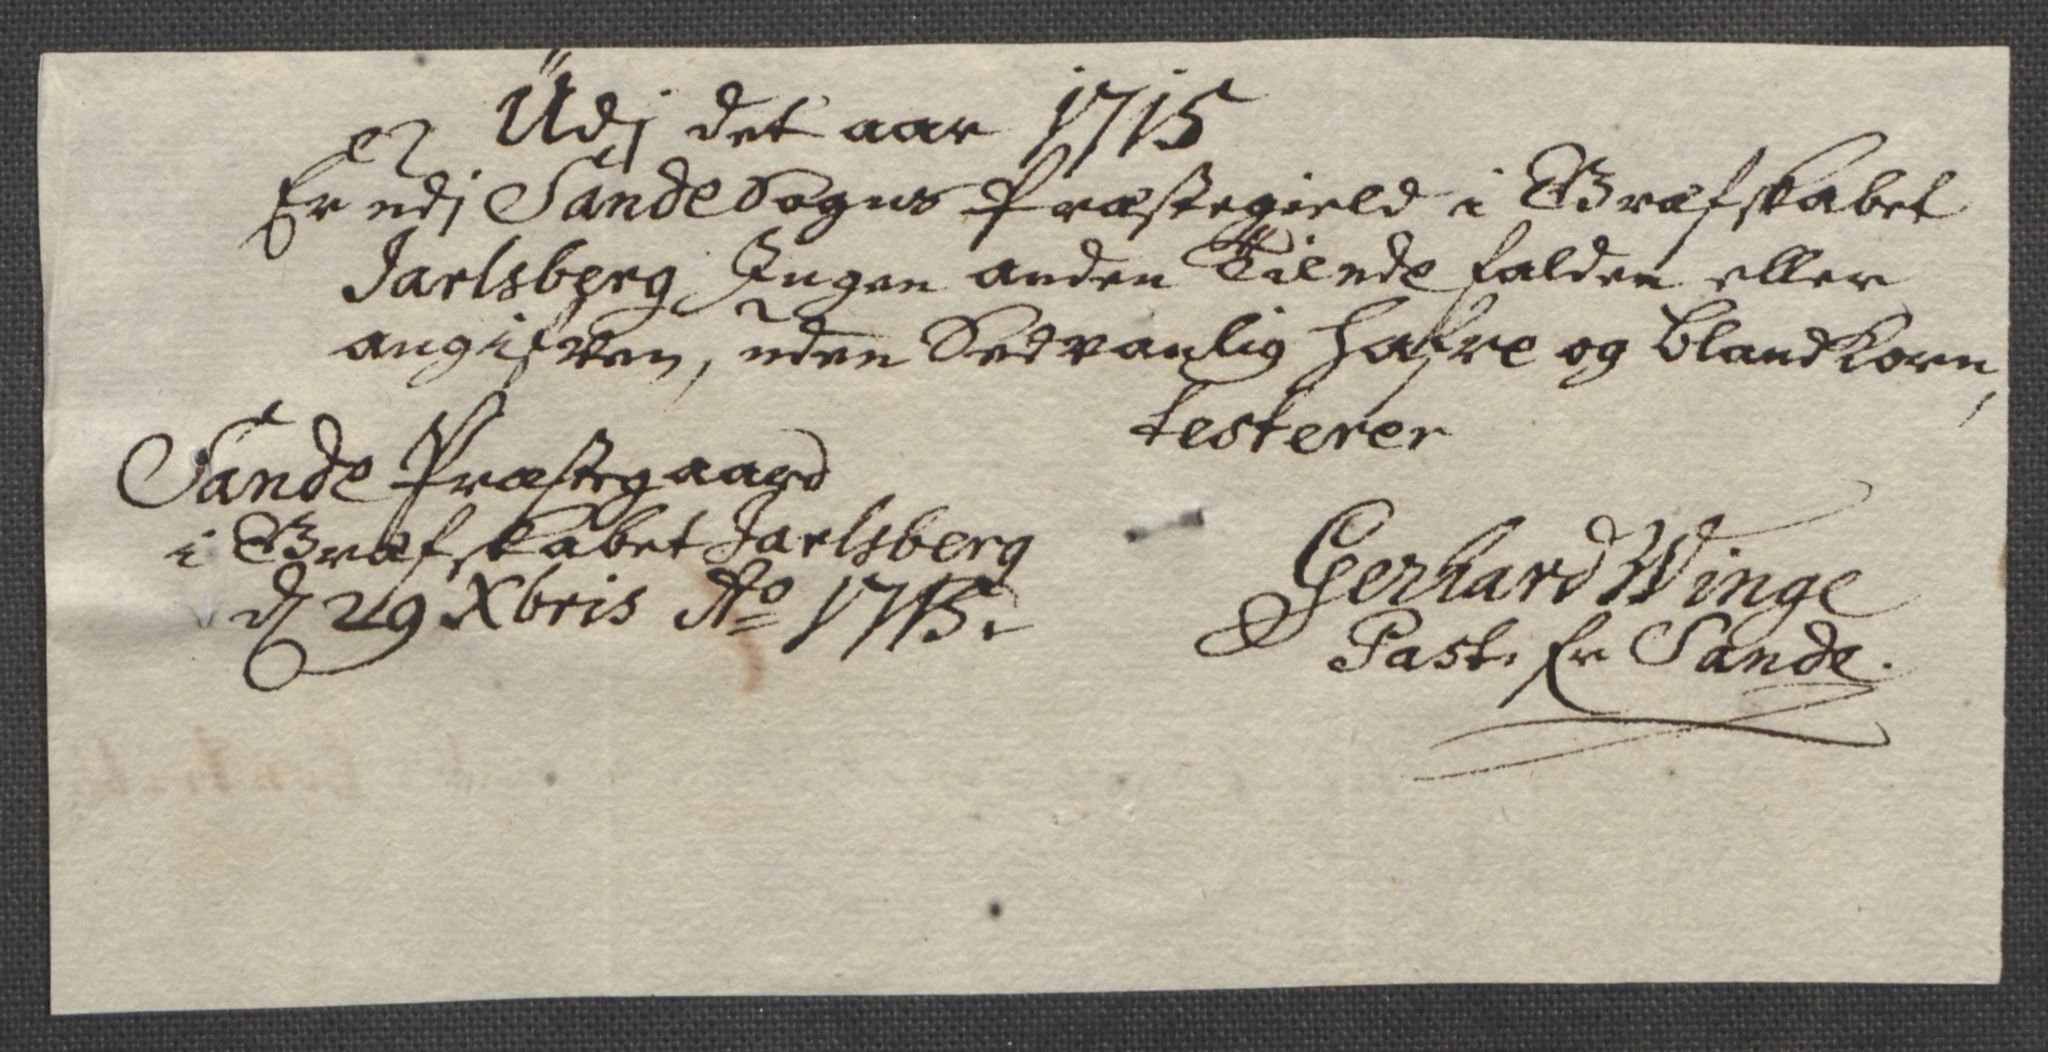 Udj det aar 1715
Er udj Sande Sogns Præstegield i Grefskabet
Jarlsberg Ingen anden Tiende falden eller
angifven, uden Sedvanlig Hafre og blandkorn,
testerer
Sande Præstegaard
i Grefskabet Jarlsberg
d 29 Xbris Ao 1715.
Gerhard Winge
Past. Sande.